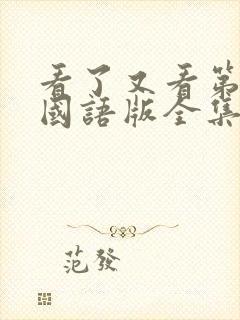 看了又看第
國語版全集
范發